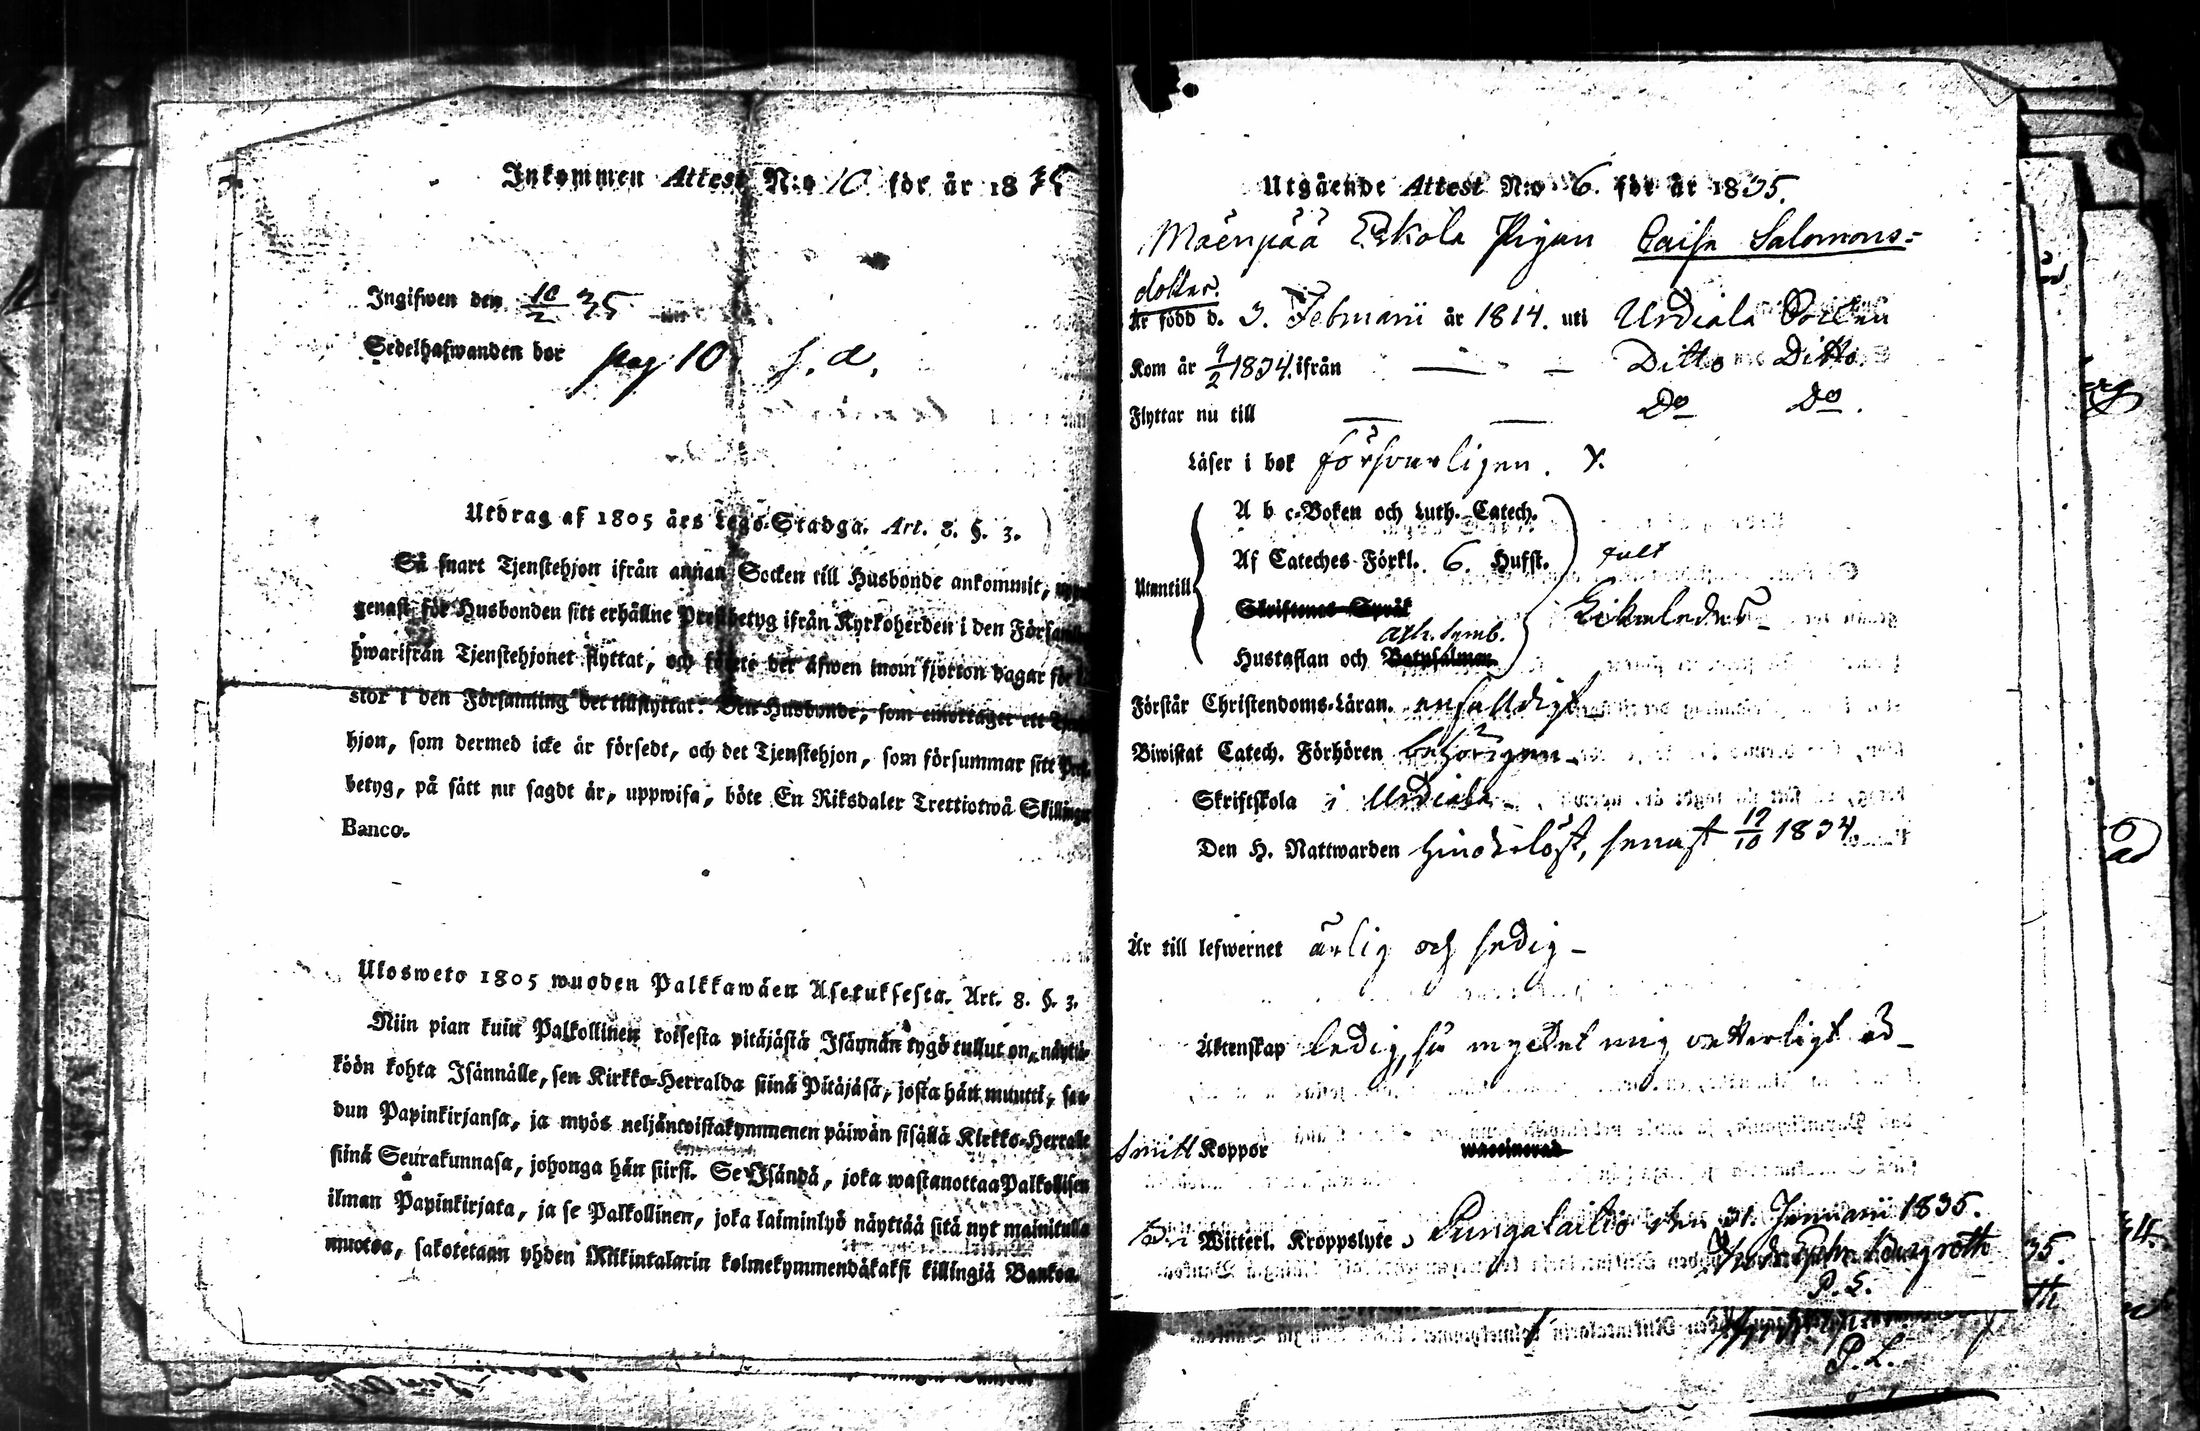 Inkommen Attest N:o 10. för år 1835
Ingifwen den 10/2 35
Sedelhafwanden bor pag 10 s. d.
Utdrag af 1805 års Lego-Stadga. Art. 8. §. 3.
Så snart Tjenstehjon ifrån annan Socken till Husbonde ankommit,
genast för Husbonden sitt erhållne Prestbetyg ifrån Kyrkoherden i den
hwarifrån Tjenstehjonet flyttat, och det äfwen inom fjorton dagar
stor i den Församling det tillflyttat. Den Husbonde, som emottager ett
hjon, som dermed icke är försedt, och det Tjenstehjon, som försummar sitt
betyg, på sätt nu sagdt är, uppwisa, böte En Riksdaler Trettiotwå Skillingar
Banco.
Ulosweto 1805 wuoden Palkkawäen Asetuksesta. Art. 8. §. 3.
Niin pian kuin Palkollinen toisesta pitäjästä Isännän tygö tullut on, näyttä-
köön kohta Isännälle, sen Kirkko-Herralda siinä Pitäjäsä, josta hän muutti, saa-
dun Papinkirjansa, ja myös neljäntoistakymmenen päiwän sisällä Kirkko-Herralle
siinä Seurakunnasa, johonga hän siirsi. Se Isändä, joka wastanottaa Palkollisen
ilman Papinkirjata, ja se Palkollinen, joka laiminlyö näyttää sitä nyt mainitulla
muotoa, sakotetaan yhden Riikintalarin kolmekymmendäkaksi killingiä Bankoa.
Utgående Attest N:o 6. för år 1835.
Mäenpää Eskola Pigan Caisa Salomons=
dotter.
Är född d. 3. Februarii år 1814. uti Urdiala Socken
Kom år 9/2 1834. ifrån — — Ditto Ditto.
Flyttar nu till — — Do Do.
Läser i bok försvarligen.
Utantill
A b c-Boken och Luth. Catech.
Af Cateches-Förkl. 6. Hufst.
Skriftenes Språk
Ath. Symb.
Hustaflan och Botpsalmer
Förstår Christendoms-Läran. enfaldigt
Biwistat Catech. Förhören behörigen
Skriftskola i Urdiala
Den H. Nattwarden hinderlöst, senast 19/10 1834.
Är till lefwernet ärlig och sedig –
Äktenskap ledig, så mycket mig vetterligt är –
Smitt Koppor waccinerad
Witterl. Kroppslyte, Pungalaitio den 31. Januarii 1835.
P. L.
P. L.